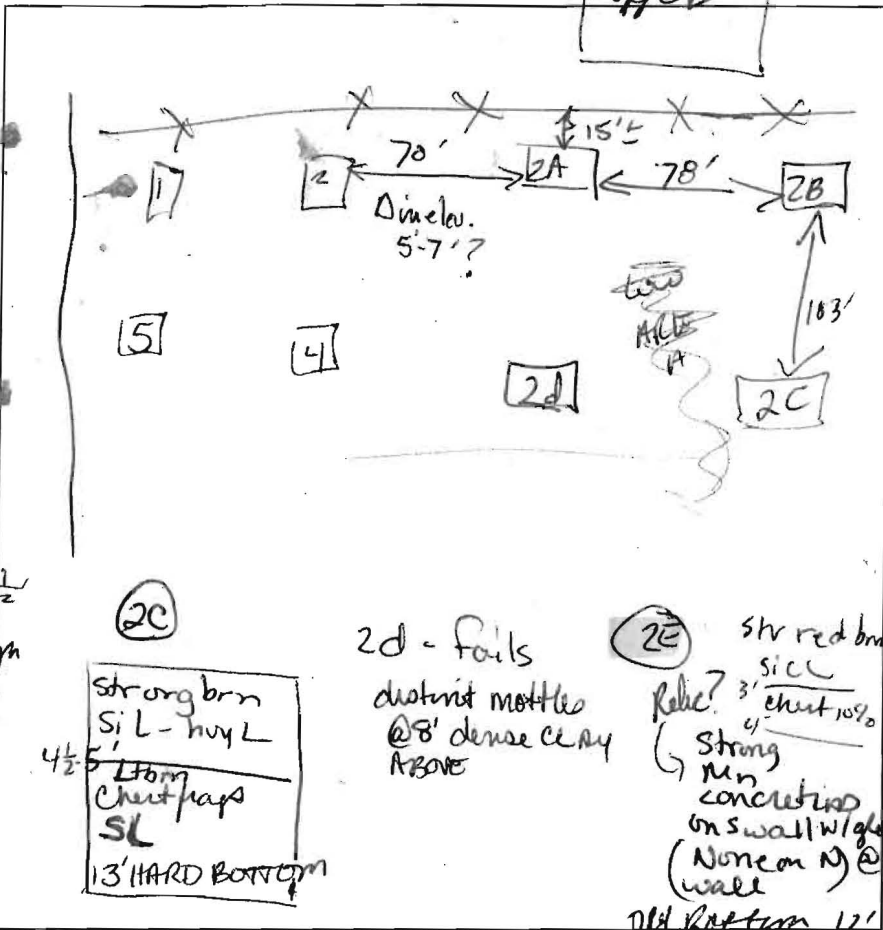 15'±
1
2
70'
2A
78'
2B
Δ in elev.
5'-7'?
103'
LOW
AREA
5
4
2d
2C
2C
strong brn
SiL - hvy L
4½-5'
Lt brn
Chert frags
SL
13' HARD BOTTOM
2d - fails
distinct mottles
@8' dense clay
ABOVE
2E
str red brn
SiCL
3'
chert 10%
4'
Relic?
Strong
Mn
concretions
on S wall w/
(None on N) @
wall
Bottom 12'